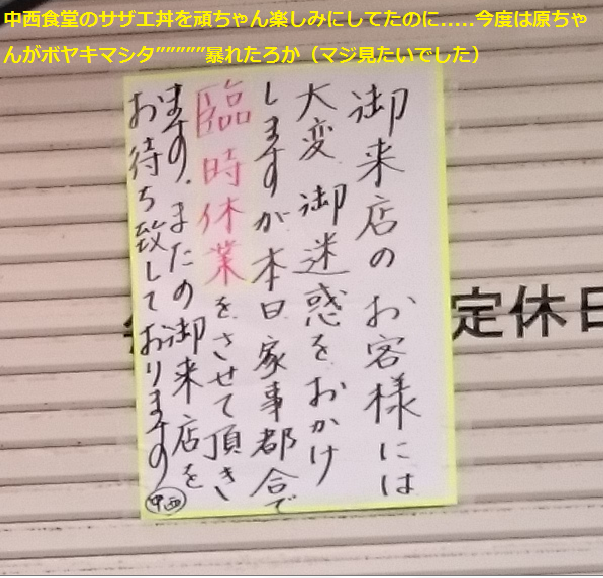 中西食堂のサザエ丼を頑ちゃん楽しみにしてたのに.....今度は原ちゃ
んがボヤキマシタ”””””暴れたろか（マジ見たいでした）
御来店のお客様には
大変御迷惑をおかけ
しますが本日家事都合で
臨時休業をさせて頂き
ますの、またの御来店を
お待ち致しておりますの
中西
定休日